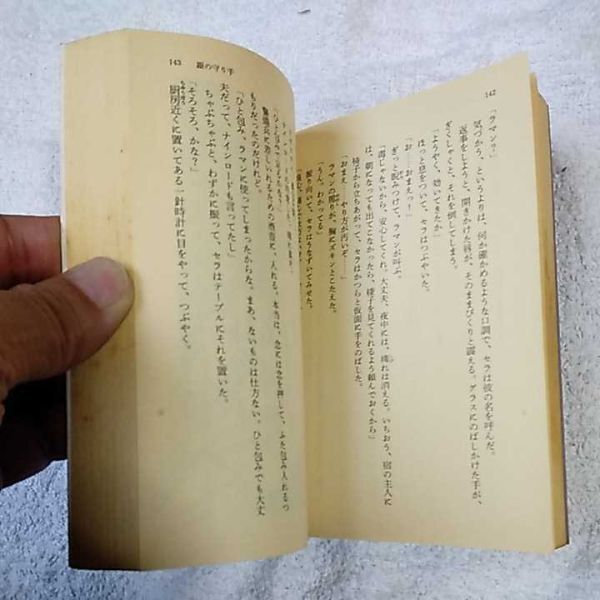 142
「ラマン?」
気づかう、というよりは、何か確かめるような口調で、セラは彼の名を呼んだ。
返事をしようと、開きかけた唇が、そのままぴくりと震える。グラスにのばしかけた手が、
ぎくしゃくと、それを倒してしまう。
「ようやく、効いてきたか」
ほっと息をついて、セラはつぶやいた。
「お……おまえっ!」
ぎっと睨みつけて、ラマンが叫ぶ。
「毒じゃないから、安心してくれ。大丈夫、夜中には、痺れは消える。いちおう、宿の主人に
は、朝になっても出てこなかったら、様子を見てくれるよう頼んでおくから」
椅子から立ちあがって、セラはかつらと仮面に手をのばした。
「おまえ……やり方が汚いぞ……」
ラマンの怒りが、胸にズキンとこたえた。
「うん。わかってる」
振り向いて、セラはうなずいてみせた。
143 銀の守り手
「ひと包み
もりだったのだけれど。
「ひと包み、ラマンに使ってしまったからな。まあ、ないものは仕方ない。ひと包みでも大丈
夫だって、ナインロードも言ってたし」
ちゃぷちゃぷと、わずかに振って、セラはテーブルにそれを置いた。
「そろそろ、かな?」
厨房近くに置いてある一針時計に目をやって、つぶやく。